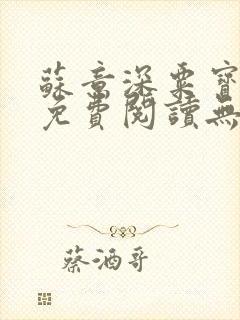 蘇意深粟寶
免費閱讀無
蔡酒哥